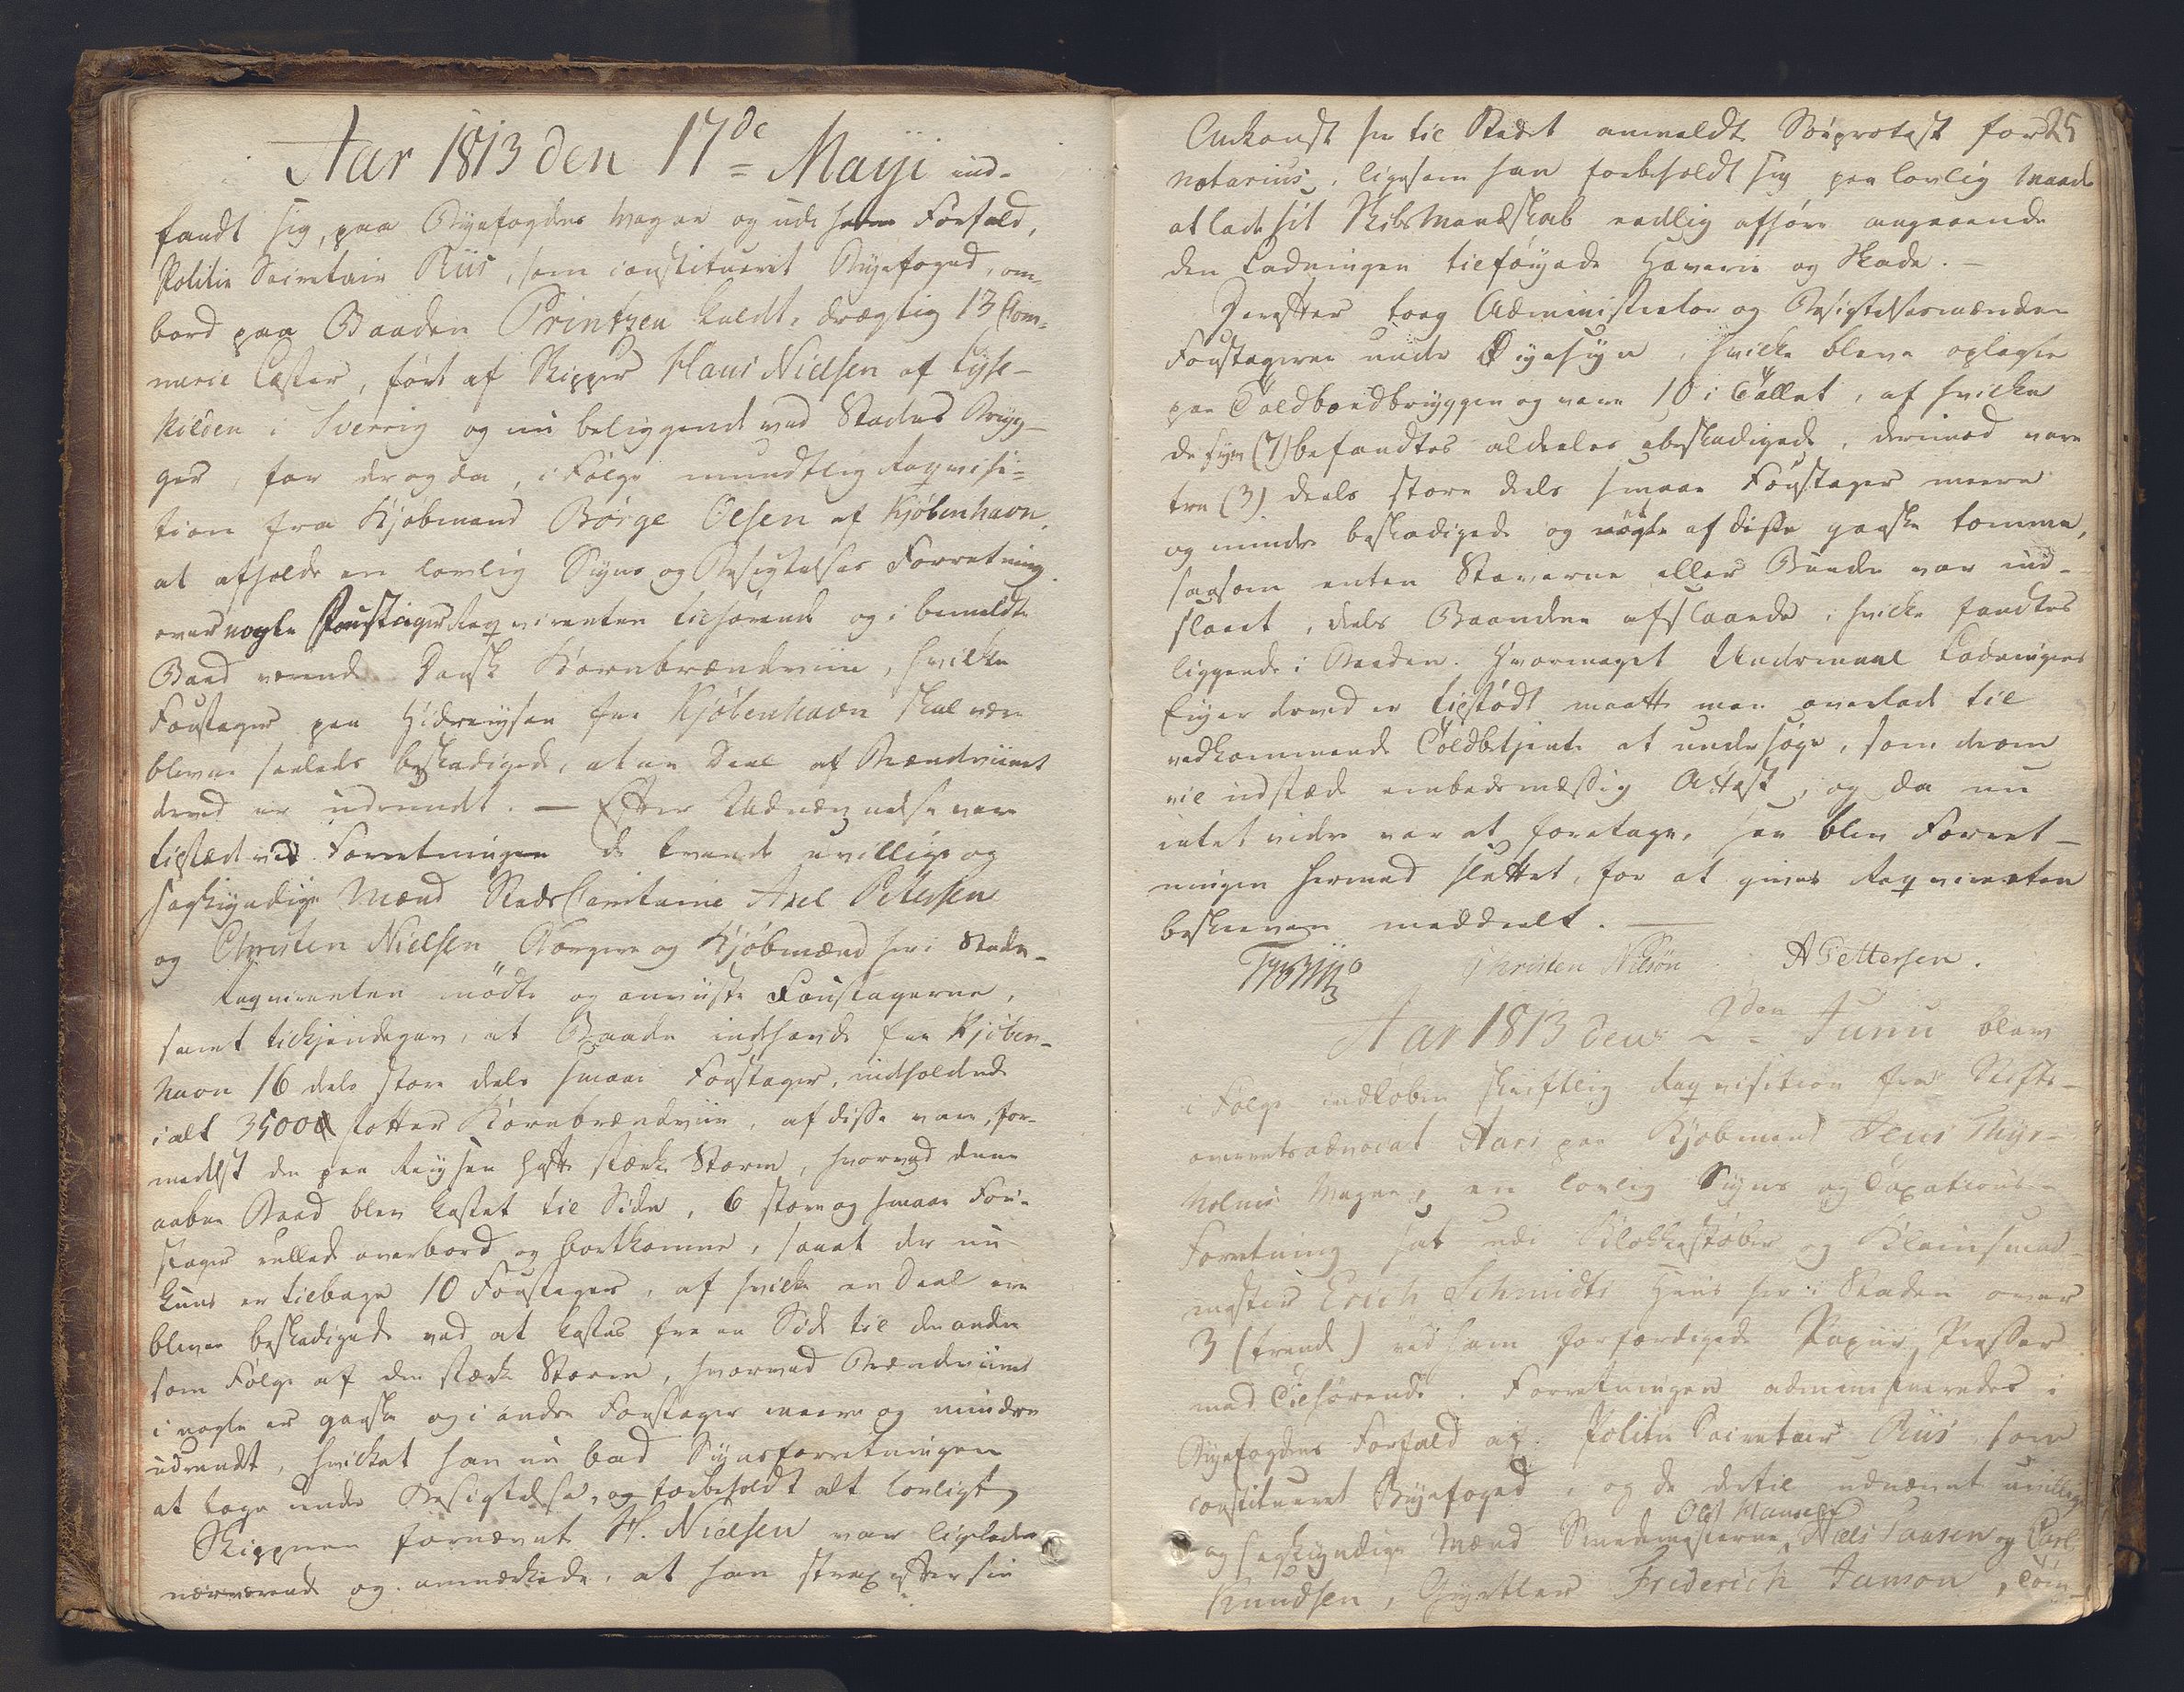 Aar 1813 den 17de Maÿi ind-
fandt sig, paa Byefogdens vegne og udi hans Forfald,
Politie Secretair Riis, som constitueret Byefoged, om-
bord paa Baaden Printzen kaldt, drægtig 13 Com-
merce Læster, ført af Skipper Hans Nielsen af Lyse-
kilden i Sverrig og nu beliggende ved Stadens Bryg-
ger, for der og da, i Følge mundtlig Reqvisi-
tion fra Kjøbmand Børge Olsen af Kjøbenhavn,
at afholde en lovlig Syns og Besigtelses Forretning
over nogle Foustager Reqvirenten tilhørende og i bemeldte
Baad værende Dansk Kornbrændeviin, hvilke
Foustager paa Hidreysen fra Kjøbenhavn skal være
blevne saaledes beskadigede, at en Deel af Brændeviinet
derved er udrundt. — Efter Udnævnelse vare
tilstæde ved Forretningen de tvende uvillige og
sagkyndige Mænd StadsCapitaine Axel Petersen
og Christen Nielsen Borgere og Kjøbmænd her i Staden
Reqvirenten mødte og anviiste Foustagerne,
samt tilkjendegav, at Baaden indehavde fra Kjøben-
havn 16 deels store deels smaae Foustager, indholdende
i alt 3500 Potter Kornbrændeviin, af disse vare, for-
medelst den paa Reysen havte stærke Storm, hvorved denne
aabne Baad blev kastet til Siden, 6 store og smaae Fou-
stager rullede overbord og bortkomne, saa at der nu
kuns er tilbage 10 Foustager, af hvilke en Deel ere
blevne beskadigede ved at kastes fra en Side til den anden
som Følge af den stærke Storm, hvorved Brændeviinet
i nogle er ganske og i andre Foustager meere og mindre
udrendt, hvilket han nu bad Synsforretningen
at tage under Besigtelse, og forbeholdt alt lovligt
Skipperen fornævnt H. Nielsen var ligeledes
nærværende og anmærkede, at han strax efter sin
25
Ankomst her til Stedet anmeldte Søeprotest for
Notarius, ligesom han forbeholdt sig paa lovlig Maade
at lade sit Skibs Mandskab eedlig afhøre angaaende
den Ladningen tilføyede Haverie og Skade. —
Derefter toeg Administrator og Besigtelsesmændene
Foustagerne under Øiesyn, hvilke bleve oplagte
paa Toldbodbryggen og vare 10 i Tallet, af hvilke
de syv (7) befandtes aldeeles ubeskadigede, derimod vare
tre (3) deels store deels smaae Foustager meere
og mindre beskadigede og nogle af disse ganske tomme,
saasom enten Staverne eller Bunden var ind-
slaaet, deels Baandene afslaaede, hvilke fandtes
liggende i Baaden. Hvormeget Undermaal Ladningens
Eyer derved er tilstødt maatte man overlade til
vedkommende Toldbetjente at undersøge, som derom
vil udstæde embedsmæssig Attest, og da nu
intet videre var at foretage, saa blev Forret-
ningen hermed sluttet, for at gives Reqvirenten
beskreven meddeelt. —
Christen Nilsøn A Pettersen.
Aar 1813 den 2den Junii blev
i Følge indkoben skriftlig Reqvisition fra Stifts-
overretsadvocat Aars paa Kjøbmand Jens Thys-
holms Vegne, en lovlig Syns og Taxations
Forretning sat udi Klokkestøber og Kleinsmed-
mester Erich Schmidts Huus her i Staden over
3 (trende) ved ham forfærdigede Papiir Presser
med Tilhørende. Forretningen administreredes i
Byefogdens Forfald af Politie Secretair Riis som
constitueret Byefoged, og de dertil udnævnte uvillige
og sagkyndige Mænd Smedemesterne Olst Hansen Niels Paasen og Carl
Knudsen, Gyrtler Friderich Janson, Tøm-